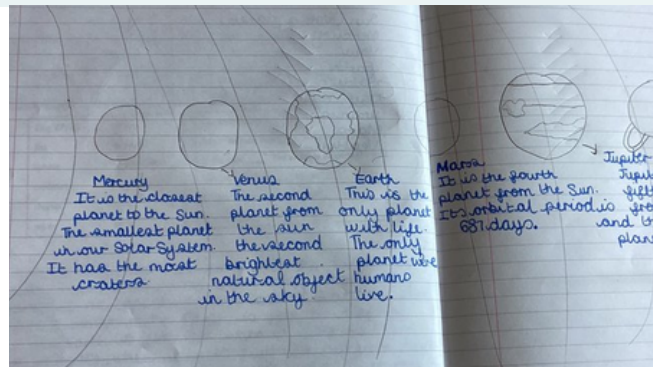 Mercury
It is the closest
planet to the Sun.
The smallest planet
in our Solar System.
It has the most
craters
Venus
The second
planet from
the sun
the second
brightest
natural object
in the sky.
Earth
This is the
only planet
with life.
The only
planet were
humans
live.
Mars
It is the fourth
planet from the Sun.
Its orbital period is
687 days.
Jupiter
and